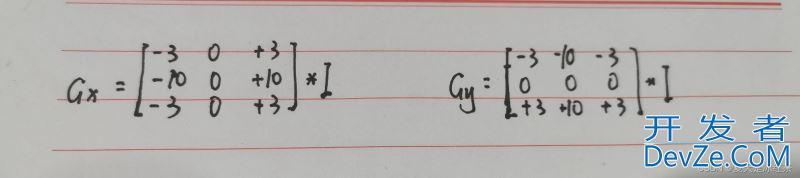 Gx = [ -3 0 +3 ; -10 0 +10 ; -3 0 +3 ] * I
Gy = [ -3 -10 -3 ; 0 0 0 ; +3 +10 +3 ] * I
开发者
DevZe.CoM